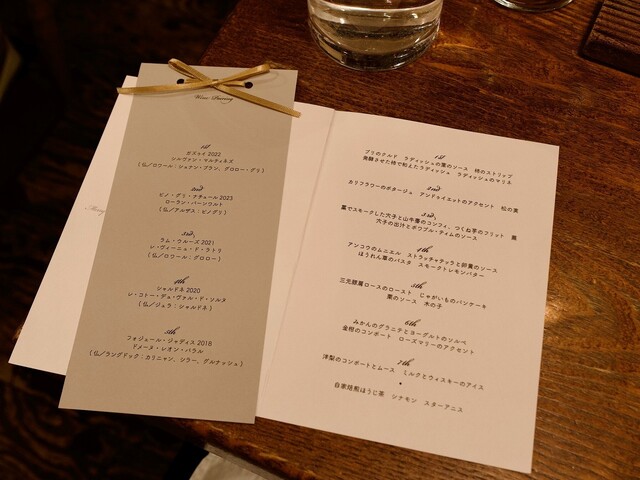 Wine Pairing
1st
ガズゥイ 2022
シルヴァン・マルティネズ
(仏/ロワール：シュナン・ブラン、グロロー・グリ)
2nd
ピノ・グリ・ナチュール 2023
ローラン・バーンワルト
(仏/アルザス：ピノグリ)
3rd
ラム・ウルーズ 2021
レ・ヴィーニュ・ド・ラトリ
(仏/ロワール：グロロー)
4th
シャルドネ 2020
レ・コトー・デュ・ヴァル・ド・ソルヌ
(仏/ジュラ：シャルドネ)
5th
フォジェール・ジャディス 2018
ドメーヌ・レオン・バラル
(仏/ラングドック：カリニャン、シラー、グルナッシュ)
1st
ブリのクルド ラディッシュの葉のソース 柿のストリップ
発酵させた柿で和えたラディッシュ ラディッシュのマリネ
2nd
カリフラワーのポタージュ アンドゥイエットのアクセント 松の実
3rd
藁でスモークした穴子と山牛蒡のコンフィ、つくね芋のフリット
穴子の出汁とポワブル・ティムのソース
4th
アンコウのムニエル ストラッチャテッラと卵黄のソース
ほうれん草のパスタ スモークトレモンバター
5th
三元豚肩ロースのロースト じゃがいものパンケーキ
栗のソース 木の子
6th
みかんのグラニテとヨーグルトのソルベ
金柑のコンポート ローズマリーのアクセント
7th
洋梨のコンポートとムース ミルクとウィスキーのアイス
自家焙煎ほうじ茶 シナモン スターアニス